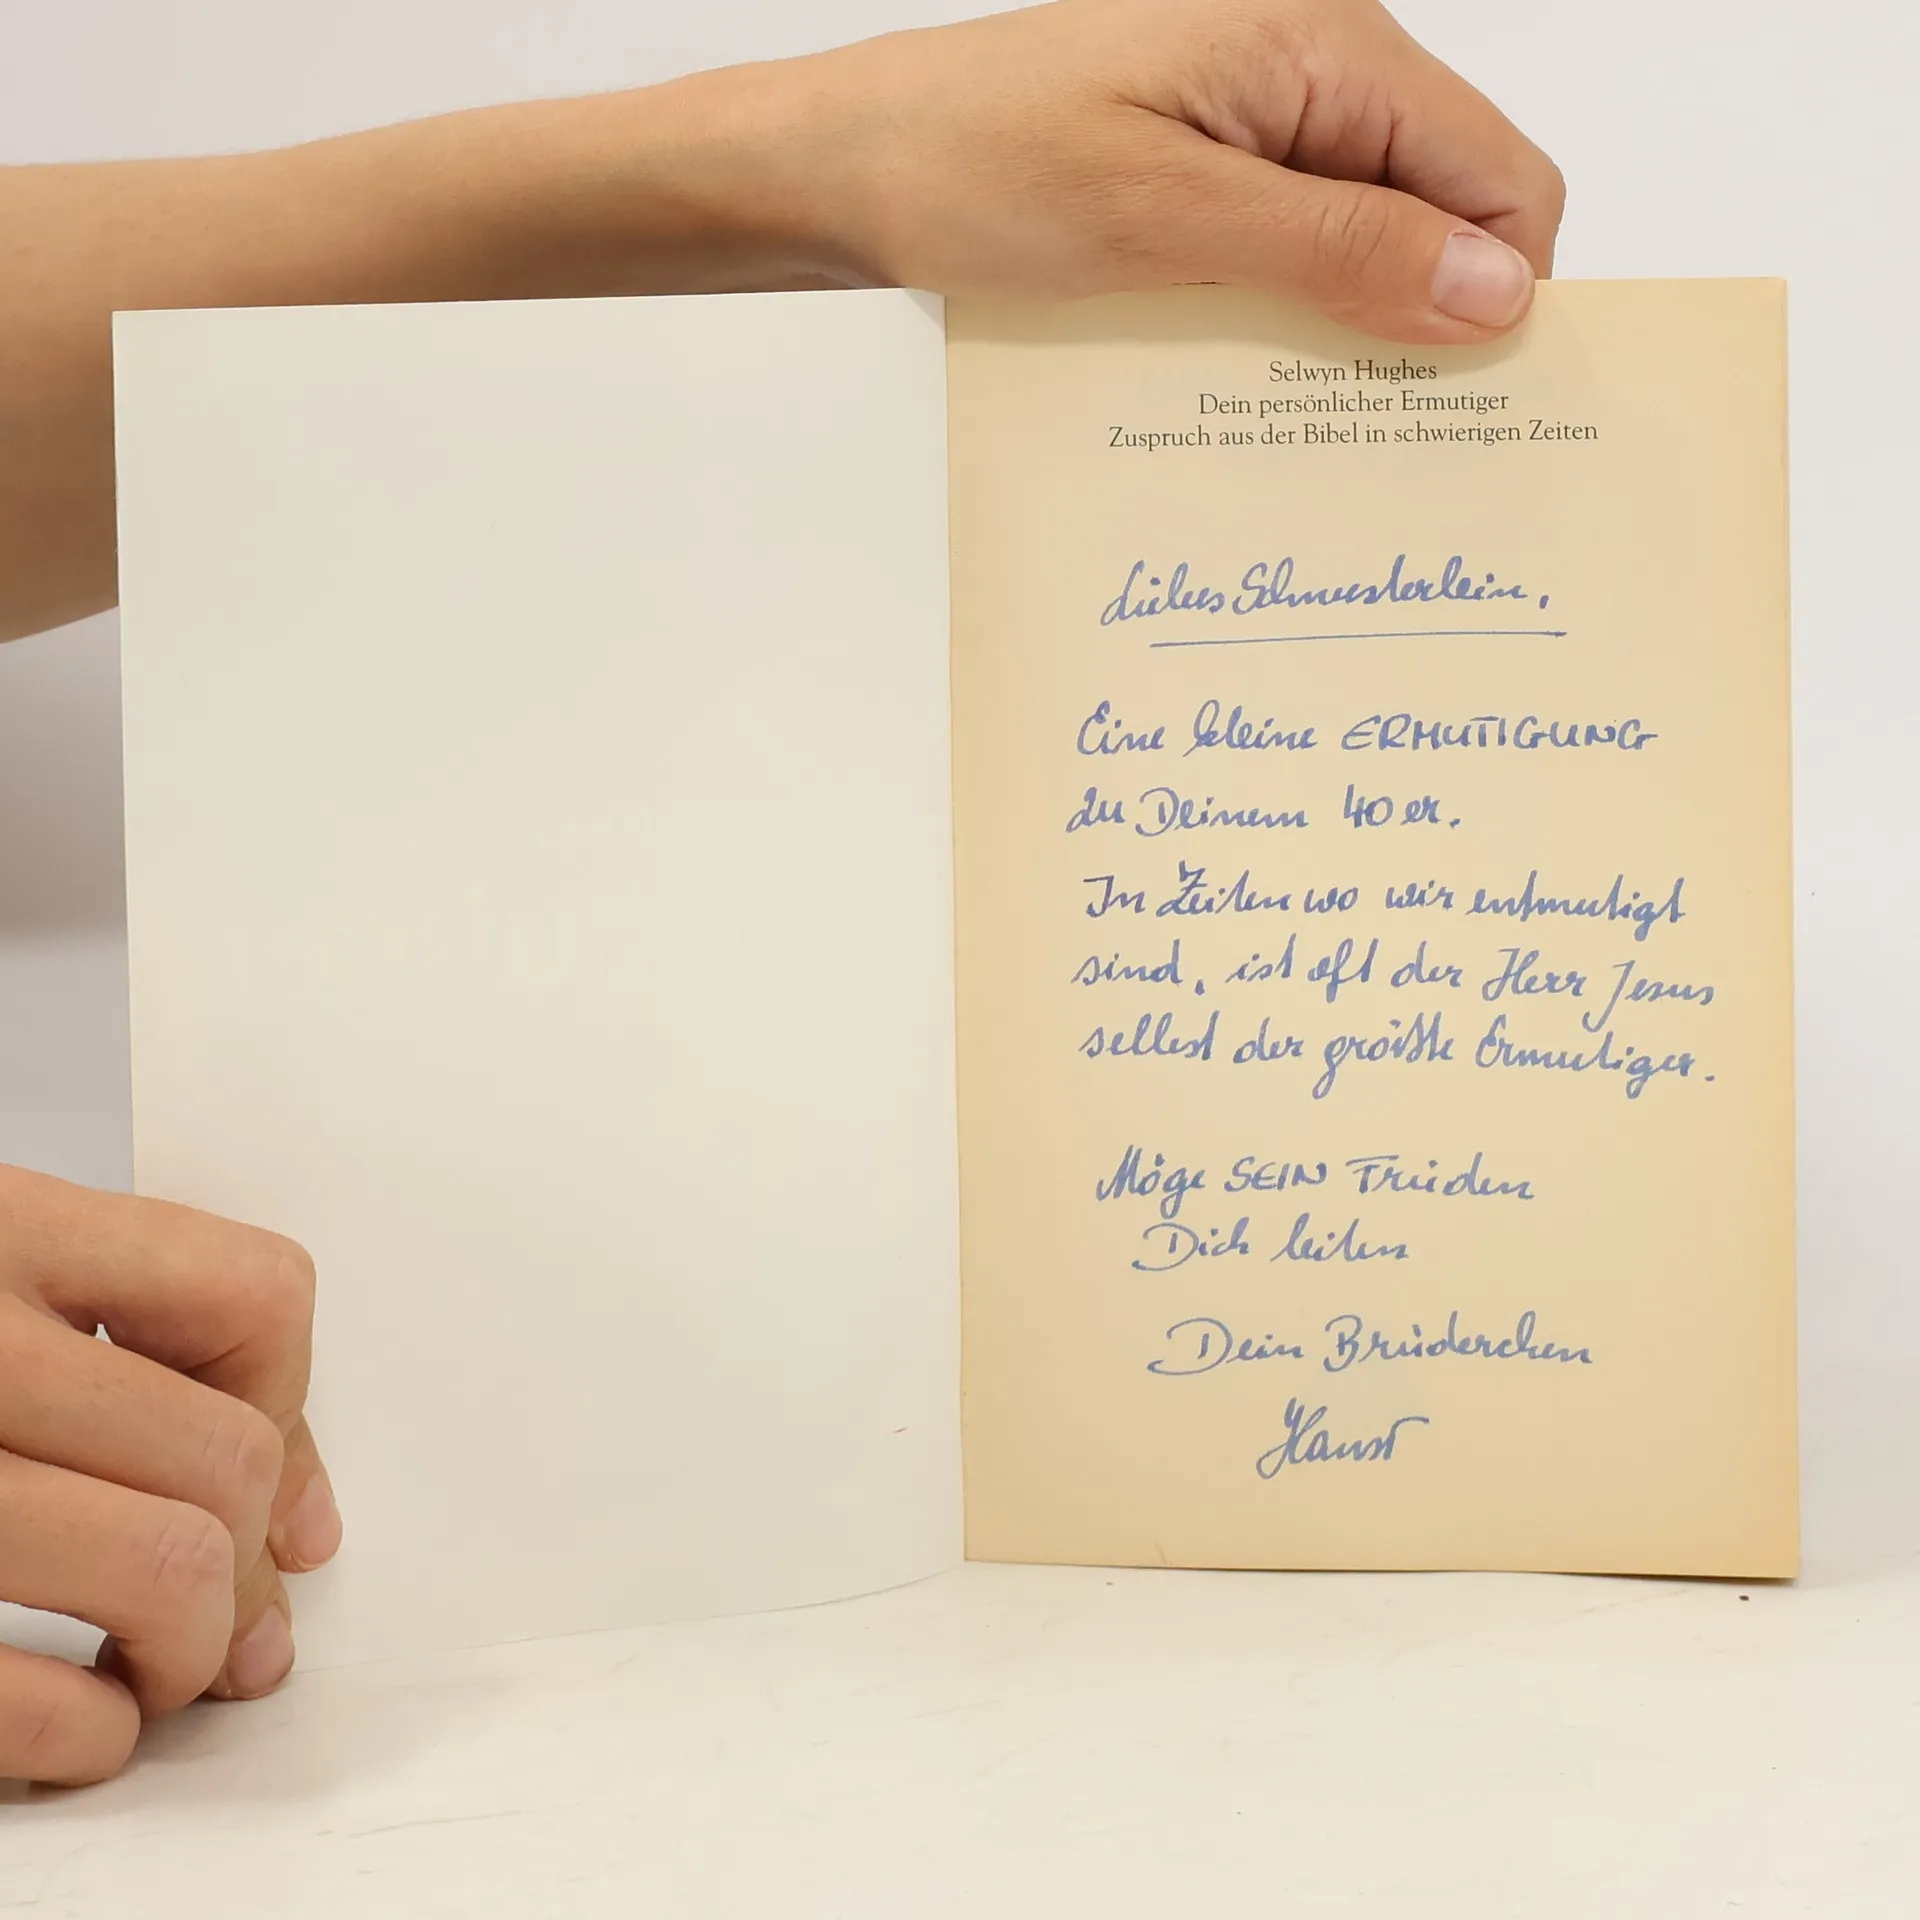 Selwyn Hughes
Dein persönlicher Ermutiger
Zuspruch aus der Bibel in schwierigen Zeiten
Liebes Schwesterlein,
Eine kleine ERMUTIGUNG
zu Deinem 40er.
In Zeiten wo wir entmutigt
sind, ist oft der Herr Jesus
selbst der größte Ermutiger.
Möge SEIN Frieden
Dich leiten
Dein Brüderchen